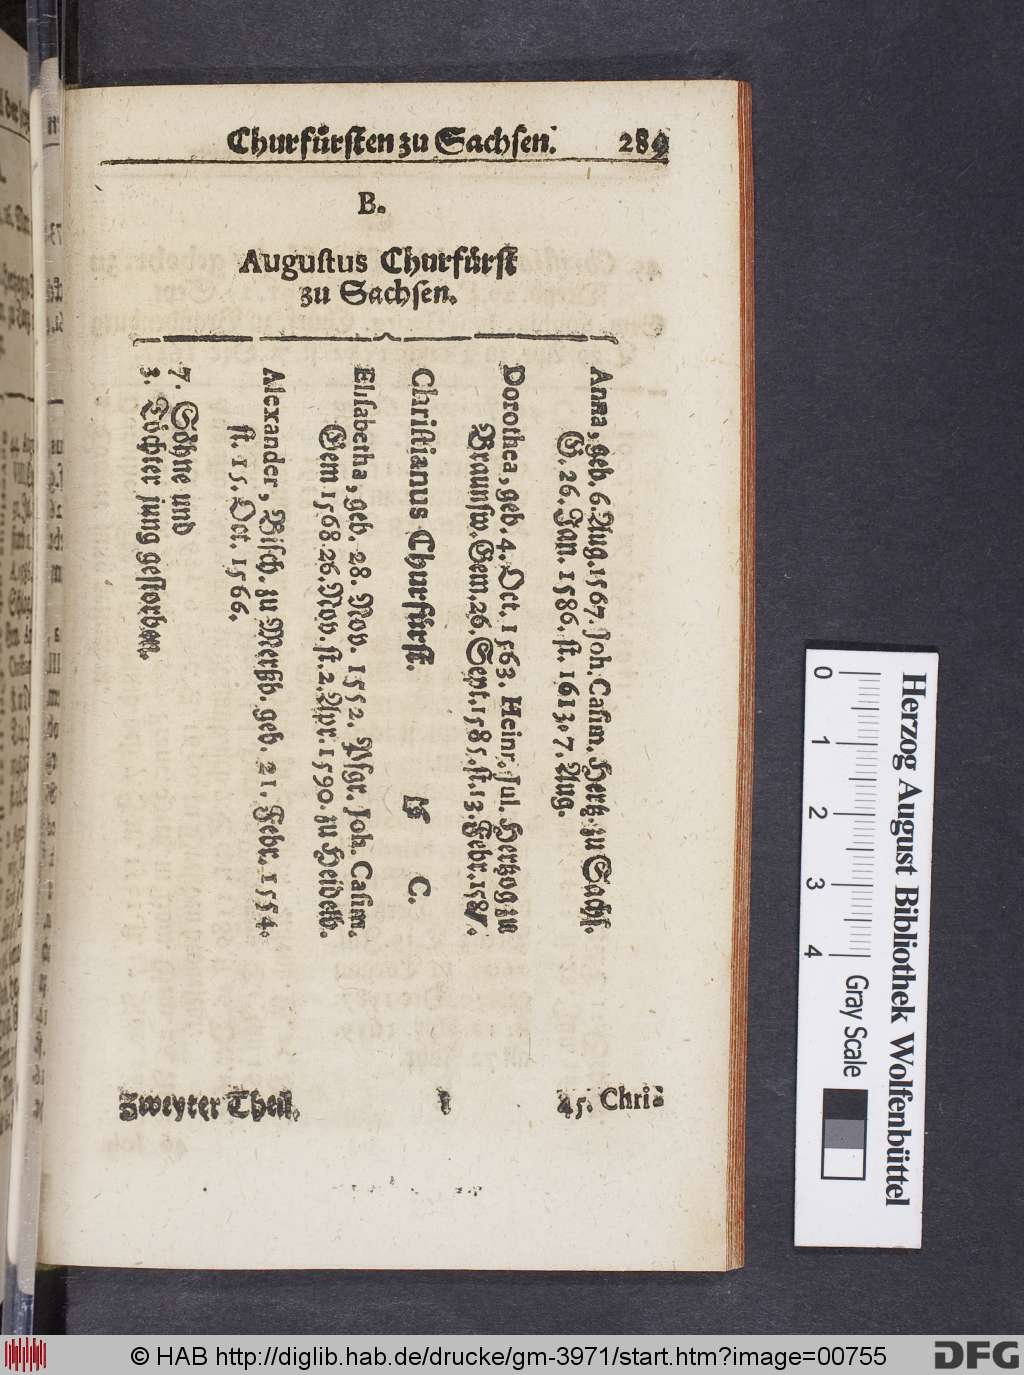 Churfürsten zu Sachsen. 289
B.
Auguſtus Churfürſt
zu Sachsen.
Anna, geb. 6. Aug. 1567. Joh. Caſim. Hertz. zu Sachſ.
G. 26. Jan. 1586. ſt. 1613. 7. Aug.
Dorothea, geb. 4. Oct. 1563. Heinr. Jul. Hertzog zu
Braunſw. Gem. 26. Sept. 1585. ſt. 13. Febr. 1587.
Chriſtianus Churfürſt. C.
Eliſabetha, geb. 28. Nov. 1552. Pfgr. Joh. Caſim.
Gem 1568. 26. Nov. ſt. 2. Apr. 1590. zu Heidelb.
Alexander, Biſch. zu Merßb. geb. 21. Febr. 1554.
ſt. 15. Oct. 1566.
7. Söhne und
3. Töchter jung geſtorben.
Zweyter Theil. 45. Chri⸗
Herzog August Bibliothek Wolfenbüttel
0 1 2 3 4 Gray Scale
© HAB http://diglib.hab.de/drucke/gm-3971/start.htm?image=00755
DFG